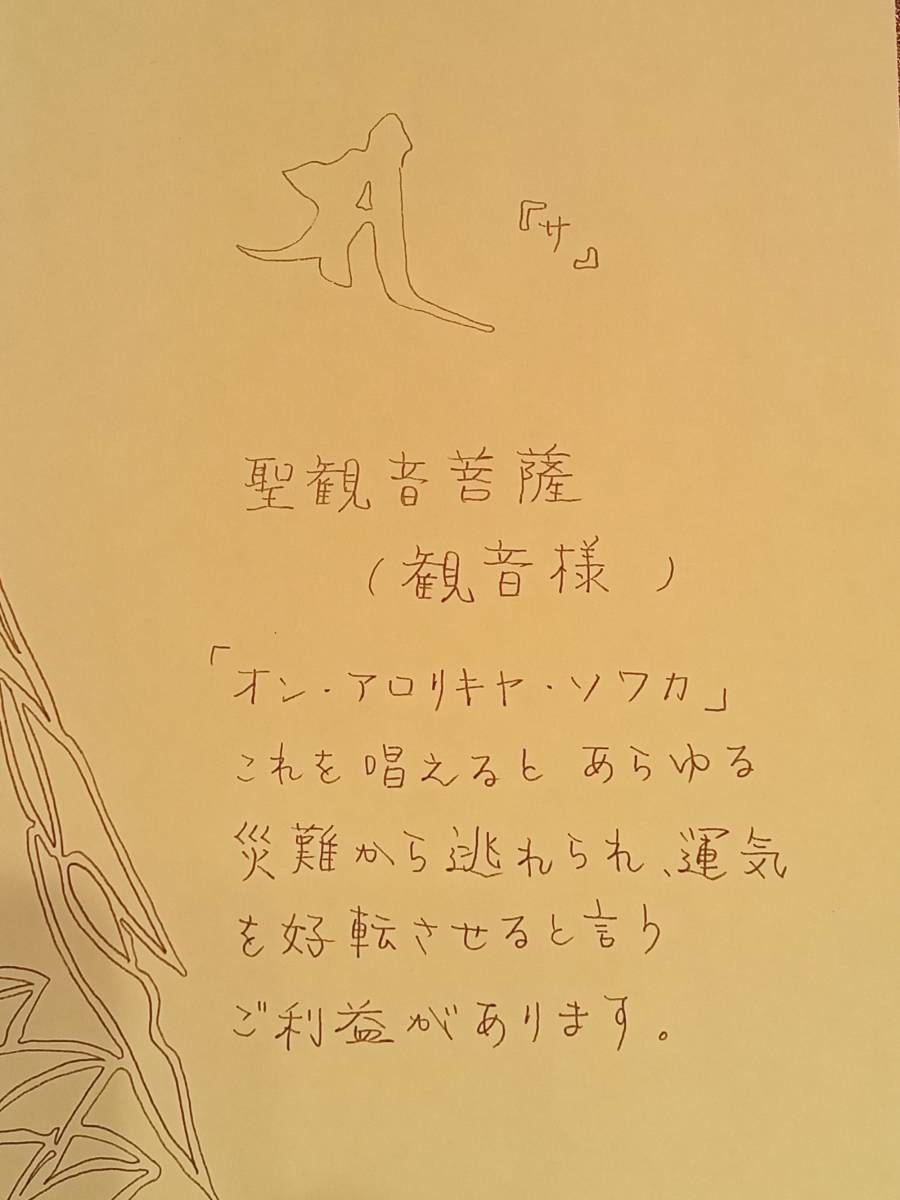 『サ』
聖観音菩薩
(観音様)
「オン・アロリキヤ・ソワカ」
これを唱えると あらゆる
災難から逃れられ、運気
を好転させると言う
ご利益があります。